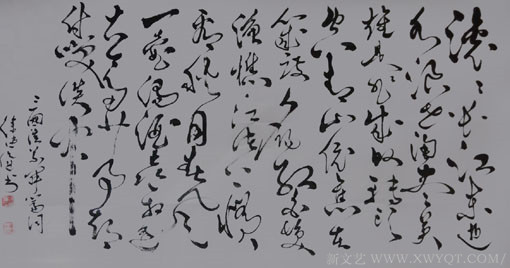 滚〻长江东逝
水浪花淘尽英
雄是非成败转头
空青山依旧在
几度夕阳红白发
渔樵江渚上惯
看秋月春风
一壶浊酒喜相逢
古今多少事都
付笑谈中
三国演义开篇词
书
新文艺 WWW.XWYQT.COM/